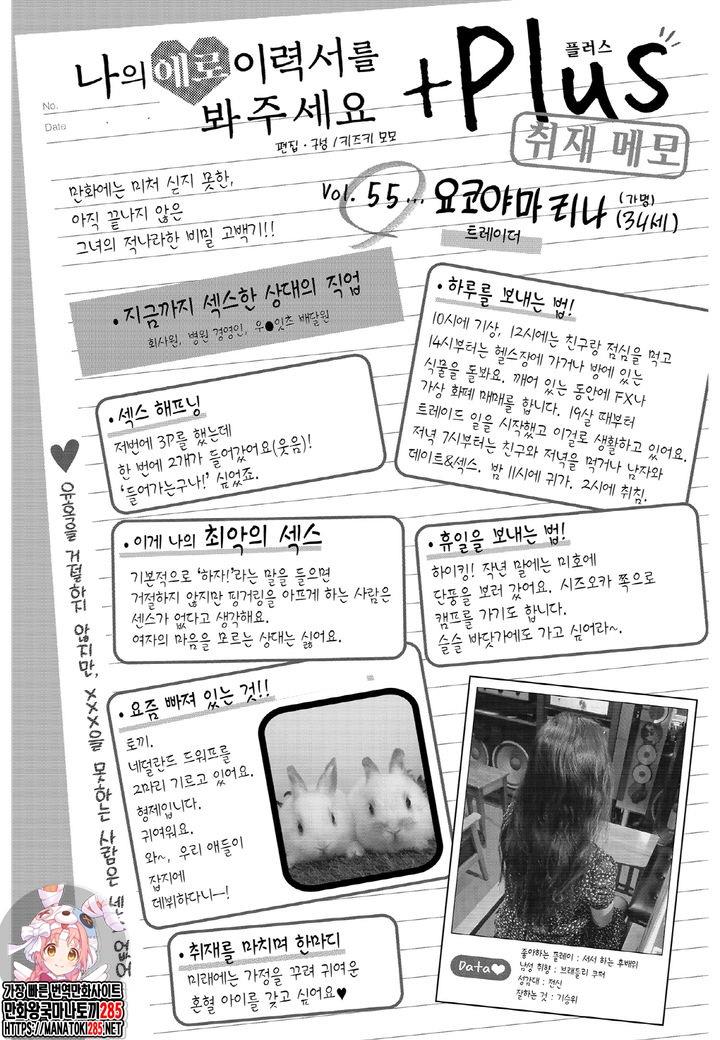 No.
Date
나의 에로 이력서를
봐 주세요
+Plus
플러스
취재 메모
편집 · 구성 / 키즈키 모모
만화에는 미처 싣지 못한,
아직 끝나지 않은
그녀의 적나라한 비밀 고백기!!
Vol. 55... 요코야마 리나 (가명) (34세)
트레이더
• 지금까지 섹스한 상대의 직업
회사원, 병원 경영인, 우●잇츠 배달원
• 하루를 보내는 법!
10시에 기상, 12시에는 친구랑 점심을 먹고
14시부터는 헬스장에 가거나 방에 있는
식물을 돌봐요. 깨어 있는 동안에 FX나
가상 화폐 매매를 합니다. 19살 때부터
트레이드 일을 시작했고 이걸로 생활하고 있어요.
저녁 7시부터는 친구와 저녁을 먹거나 남자와
데이트&섹스. 밤 11시에 귀가. 2시에 취침.
• 섹스 해프닝
저번에 3P를 했는데
한 번에 2개가 들어갔어요(웃음)!
'들어가는구나!' 싶었죠.
• 이게 나의 최악의 섹스
기본적으로 '하자!'라는 말을 들으면
거절하지 않지만 핑거링을 아프게 하는 사람은
센스가 없다고 생각해요.
여자의 마음을 모르는 상대는 싫어요.
• 휴일을 보내는 법!
하이킹! 작년 말에는 미호에
단풍을 보러 갔어요. 시즈오카 쪽으로
캠프를 가기도 합니다.
슬슬 바닷가에도 가고 싶어라~.
♥ 유혹을 거절하지 않지만, XXX을 못하는 사람은 센 없어
• 요즘 빠져 있는 것!!
토끼.
네덜란드 드워프를
2마리 기르고 있어요.
형제입니다.
귀여워요.
와~, 우리 애들이
잡지에
데뷔하다니—!
• 취재를 마치며 한마디
미래에는 가정을 꾸려 귀여운
혼혈 아이를 갖고 싶어요♥
Data♥
좋아하는 플레이 : 서서 하는 후배위
남성 취향 : 브래들리 쿠퍼
성감대 : 전신
잘하는 것 : 기승위
가장 빠른 번역만화사이트
만화왕국마나토끼285
HTTPS://MANATOKI285.NET